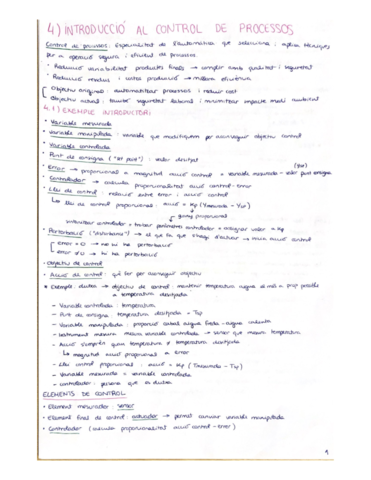 4) INTRODUCCIÓ AL CONTROL DE PROCESSOS
Control de processos: Especialitat de l'automàtica que selecciona i aplica tècniques
per a operació segura i eficient de processos
• Reducció variabilitat productes finals → complir amb qualitat i seguretat
• Reducció residus i costos producció → millora eficiència
Objectiu original: automatitzar processos i reduir cost
Objectiu actual: també seguretat laboral i minimitzar impacte medi ambiental
4.1) EXEMPLE INTRODUCTORI
• Variable mesurada
• Variable manipulada: variable que modifiquem per aconseguir objectiu control
• Variable controlada
• Punt de consigna ("set point"): valor desitjat
(Ysp)
• Error → proporcional a magnitud acció control = variable mesurada - valor punt consigna
• Controlador → calcula proporcionalitat acció control - error
• Llei de control: relació entre error i acció control
↳ Llei de control proporcional: acció = Kp (Ymesurada - Ysp)
↳ guany proporcional
Sintonitzar controlador = trobar paràmetres controlador = assignar valor a Kp
• Pertorbació ("disturbance") → el que fa que s'hagi d'activar acció control
error = 0 → no hi ha pertorbació
error ≠ 0 → hi ha pertorbació
- Objectiu de control
• Acció de control: què fer per aconseguir objectiu
• Exemple: dutxa → objectiu de control: mantenir temperatura aigua el més a prop possible
a temperatura desitjada
- Variable controlada: temperatura
- Punt de consigna: temperatura desitjada = Tsp
- Variable manipulada: proporció cabal aigua freda - aigua calenta
- Instrument mesura: mesura variable controlada → sensor que mesura temperatura
- Acció: temperatura i temperatura desitjada
↳ magnitud acció proporcional a error
- Llei control proporcional: acció = Kp (Tmesurada - Tsp)
- Variable mesurada = variable controlada
- controlador: persona que es dutxa
ELEMENTS DE CONTROL
• Element mesurador: sensor
• Element final de control: actuador → permet canviar variable manipulada
• Controlador (calcula proporcionalitat acció control - error)
1